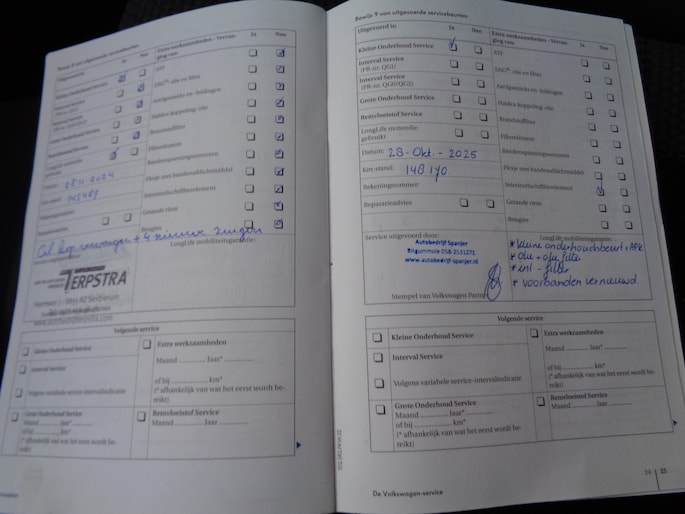 Uitgevoerd in:
Ja
Nee
Extra werkzaamheden - Vervanging van:
Ja
Nee
Kleine Onderhoud Service
ATF
Interval Service
DSG®: olie en filter
Aardgastanks en -leidingen
Interval Service
Haldex koppeling: olie
Grote Onderhoud Service
Brandstoffilter
Remvloeistof Service
Filterelement
LongLife motorolie
gebruikt
Bandenspanningssensoren
Flesje met bandenafdichtmiddel
Interieurluchtfilterelement
Reparatieadvies
Getande riem
Bougies
+ 4 nieuwe
LongLife mobiliteitsgarantie:
TERPSTRA
Volgende service
Kleine Onderhoud Service
Extra werkzaamheden
Maand ............ Jaar* ............
Interval Service
of bij ............ km*
(* afhankelijk van wat het eerst wordt bereikt)
Volgens variabele service-intervalindicatie
Grote Onderhoud Service
Maand ............ Jaar*
of bij ............ km*
(* afhankelijk van wat het eerst wordt bereikt)
Remvloeistof Service
Maand ............ Jaar ............
Bewijs 9 van uitgevoerde servicebeurten
Uitgevoerd in:
Ja
Nee
Extra werkzaamheden - Vervanging van:
Ja
Nee
Kleine Onderhoud Service
ATF
Interval Service
(PR-nr. QG1)
DSG®: olie en filter
Aardgastanks en -leidingen
Interval Service
(PR-nr. QG0/QG2)
Haldex koppeling: olie
Grote Onderhoud Service
Brandstoffilter
Remvloeistof Service
Filterelement
LongLife motorolie
gebruikt
Bandenspanningssensoren
Datum: 28 - Okt - 2025
Flesje met bandenafdichtmiddel
Km-stand: 148 170
Interieurluchtfilterelement
Rekeningnummer:
Getande riem
Reparatieadvies
Bougies
Service uitgevoerd door:
LongLife mobiliteitsgarantie:
Autobedrijf Spanjer
058-2531271
www.autobedrijf-spanjer.nl
* kleine onderhoudsbeurt + APK
* olie + olie filter
* int - filter
* voorbanden vernieuwd
Stempel van Volkswagen Partner
Volgende service
Kleine Onderhoud Service
Extra werkzaamheden
Maand ............ Jaar* ............
Interval Service
of bij ............ km*
(* afhankelijk van wat het eerst wordt bereikt)
Volgens variabele service-intervalindicatie
Grote Onderhoud Service
Maand ............ Jaar*
of bij ............ km*
(* afhankelijk van wat het eerst wordt bereikt)
Remvloeistof Service
Maand ............ Jaar ............
24 | 25
De Volkswagen-service